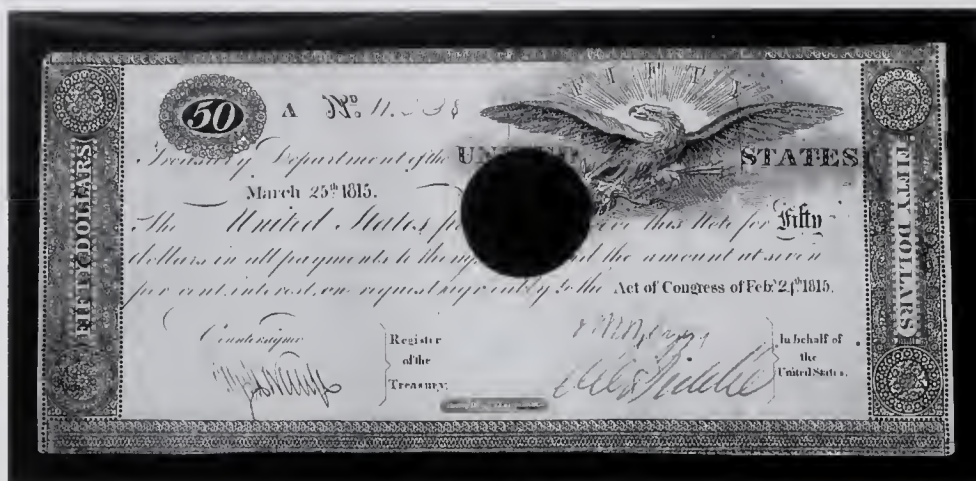 FIFTY
50 A No. 11.
Treasury Department of the UNITED STATES
March 25th 1815.
The United States this Note for Fifty
dollars in all payments to the amount at seven
per cent. interest, on request agreeably to the Act of Congress of Feby. 24th 1815.
Countersigned
Register
of the
Treasury.
In behalf of
the
United States.
FIFTY DOLLARS
FIFTY DOLLARS